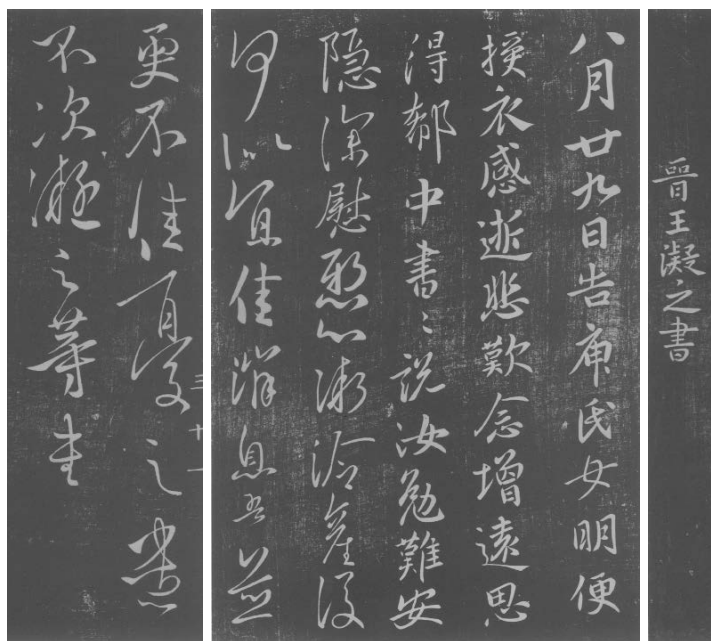 晉王凝之書
八月廿九日告庾氏女明便
授衣感逝悲歎念增遠思
得郗中書〻說汝勉難安
隱深慰懸心漸冷產後
何似宜佳消息吾並
更不佳憂之
三十一
不次凝之等書